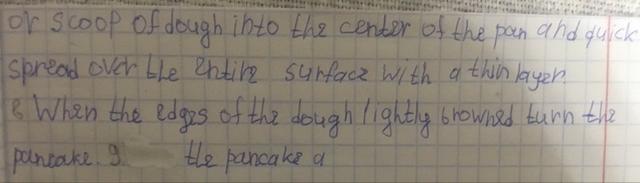 or scoop of dough into the center of the pan and quick
spread over the entire surface with a thin layer.
8 When the edges of the dough lightly browned turn the
pancake. 9. the pancake a